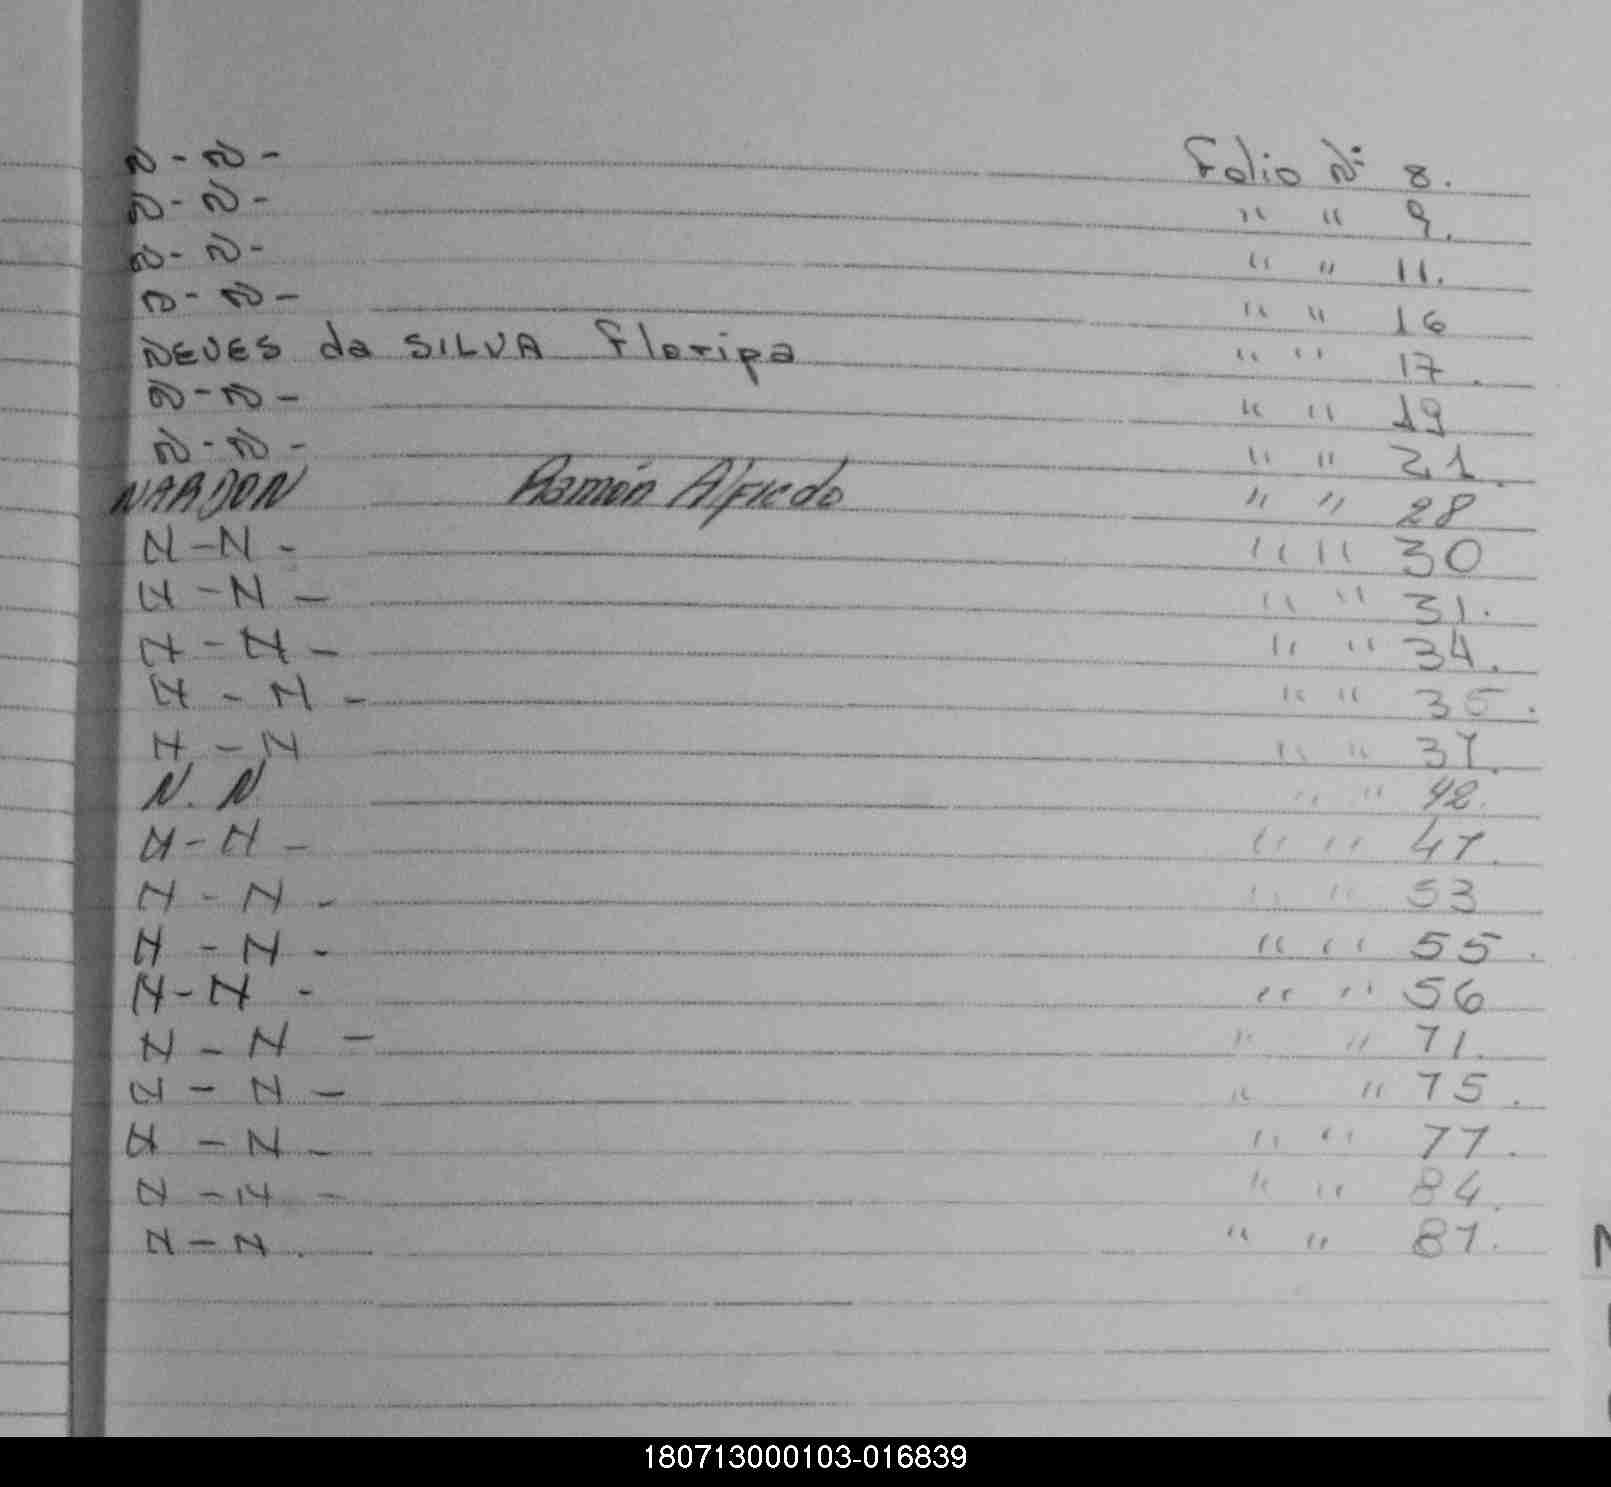 N - N - Folio Nº 8.
N - N - " " 9.
N - N - " " 11.
N - N - " " 16
NEVES da SILVA Floripa " " 17.
N - N - " " 19
N - N - " " 21.
NARDON Ramón Alfredo " " 28
N - N - " " 30
N - N - " " 31.
N - N - " " 34.
N - N - " " 35.
N - N " " 37.
N. N " " 42.
N - N - " " 47.
N - N - " " 53
N - N - " " 55.
N - N - " " 56
N - N - " " 71.
N - N - " " 75.
N - N - " " 77.
N - N - " " 84.
N - N. " " 87.
180713000103-016839